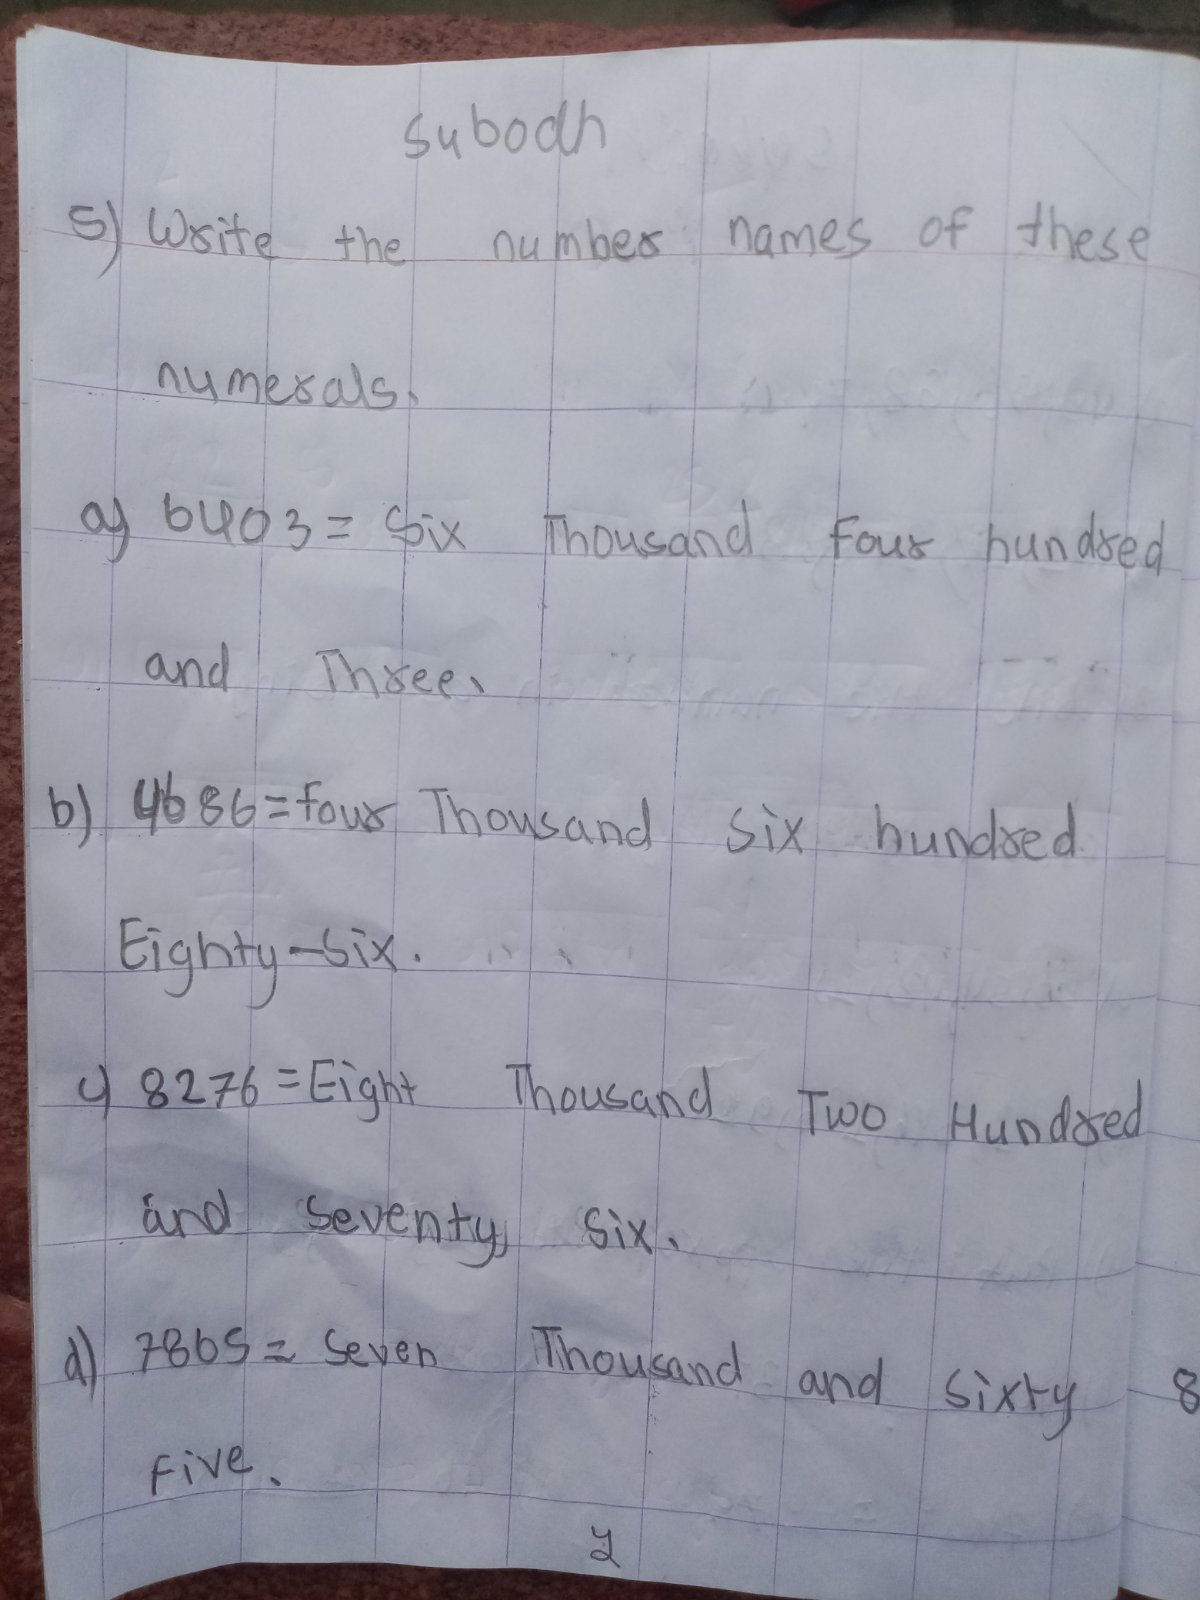 Subodh
5) Write the number names of these
numerals.
a) 6403 = Six Thousand Four hundred
and Three.
b) 4686 = four Thousand six hundred
Eighty-six.
c) 8276 = Eight Thousand Two Hundred
and Seventy six.
d) 7865 = Seven Thousand and sixty
Five.
8